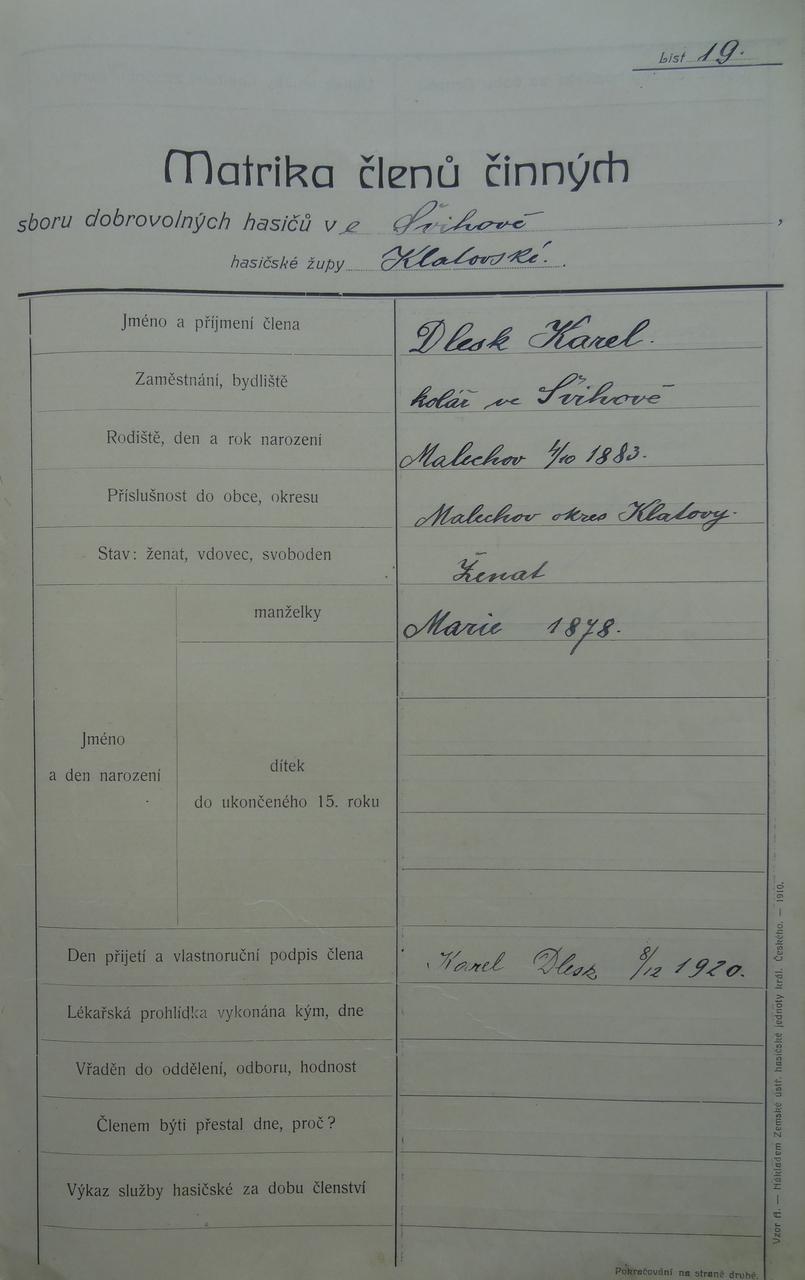 List 19.
Matrika členů činných
sboru dobrovolných hasičů ve Švihově,
hasičské župy Klatovské.
Jméno a příjmení člena Dlesk Karel.
Zaměstnání, bydliště kolář ve Švihově
Rodiště, den a rok narození Malechov 4/10 1883.
Příslušnost do obce, okresu Malechov okres Klatovy.
Stav: ženat, vdovec, svoboden Ženat
manželky Marie 1878.
Jméno
a den narození
dítek
do ukončeného 15. roku
Den přijetí a vlastnoruční podpis člena Karel Dlesk 8/12 1920.
Lékařská prohlídka vykonána kým, dne
Vřaděn do oddělení, odboru, hodnost
Členem býti přestal dne, proč?
Výkaz služby hasičské za dobu členství
Pokračování na straně druhé.
Vzor II. — Nákladem Zemské ústř. hasičské jednoty král. Českého. — 1910.